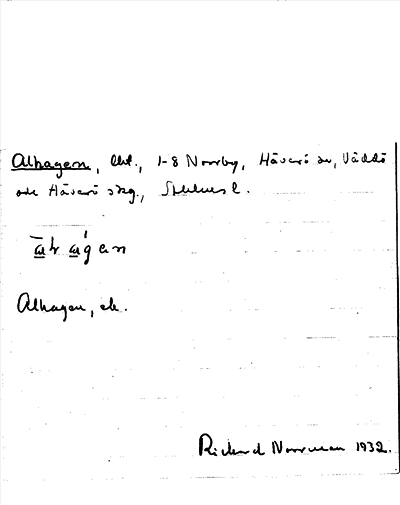 Alhagen, lht., 1-8 Norrby, Häverö sn, Väddö
och Häverö skg., Sthlms l.
Alhagen, ek.
Richard Norrman 1932.